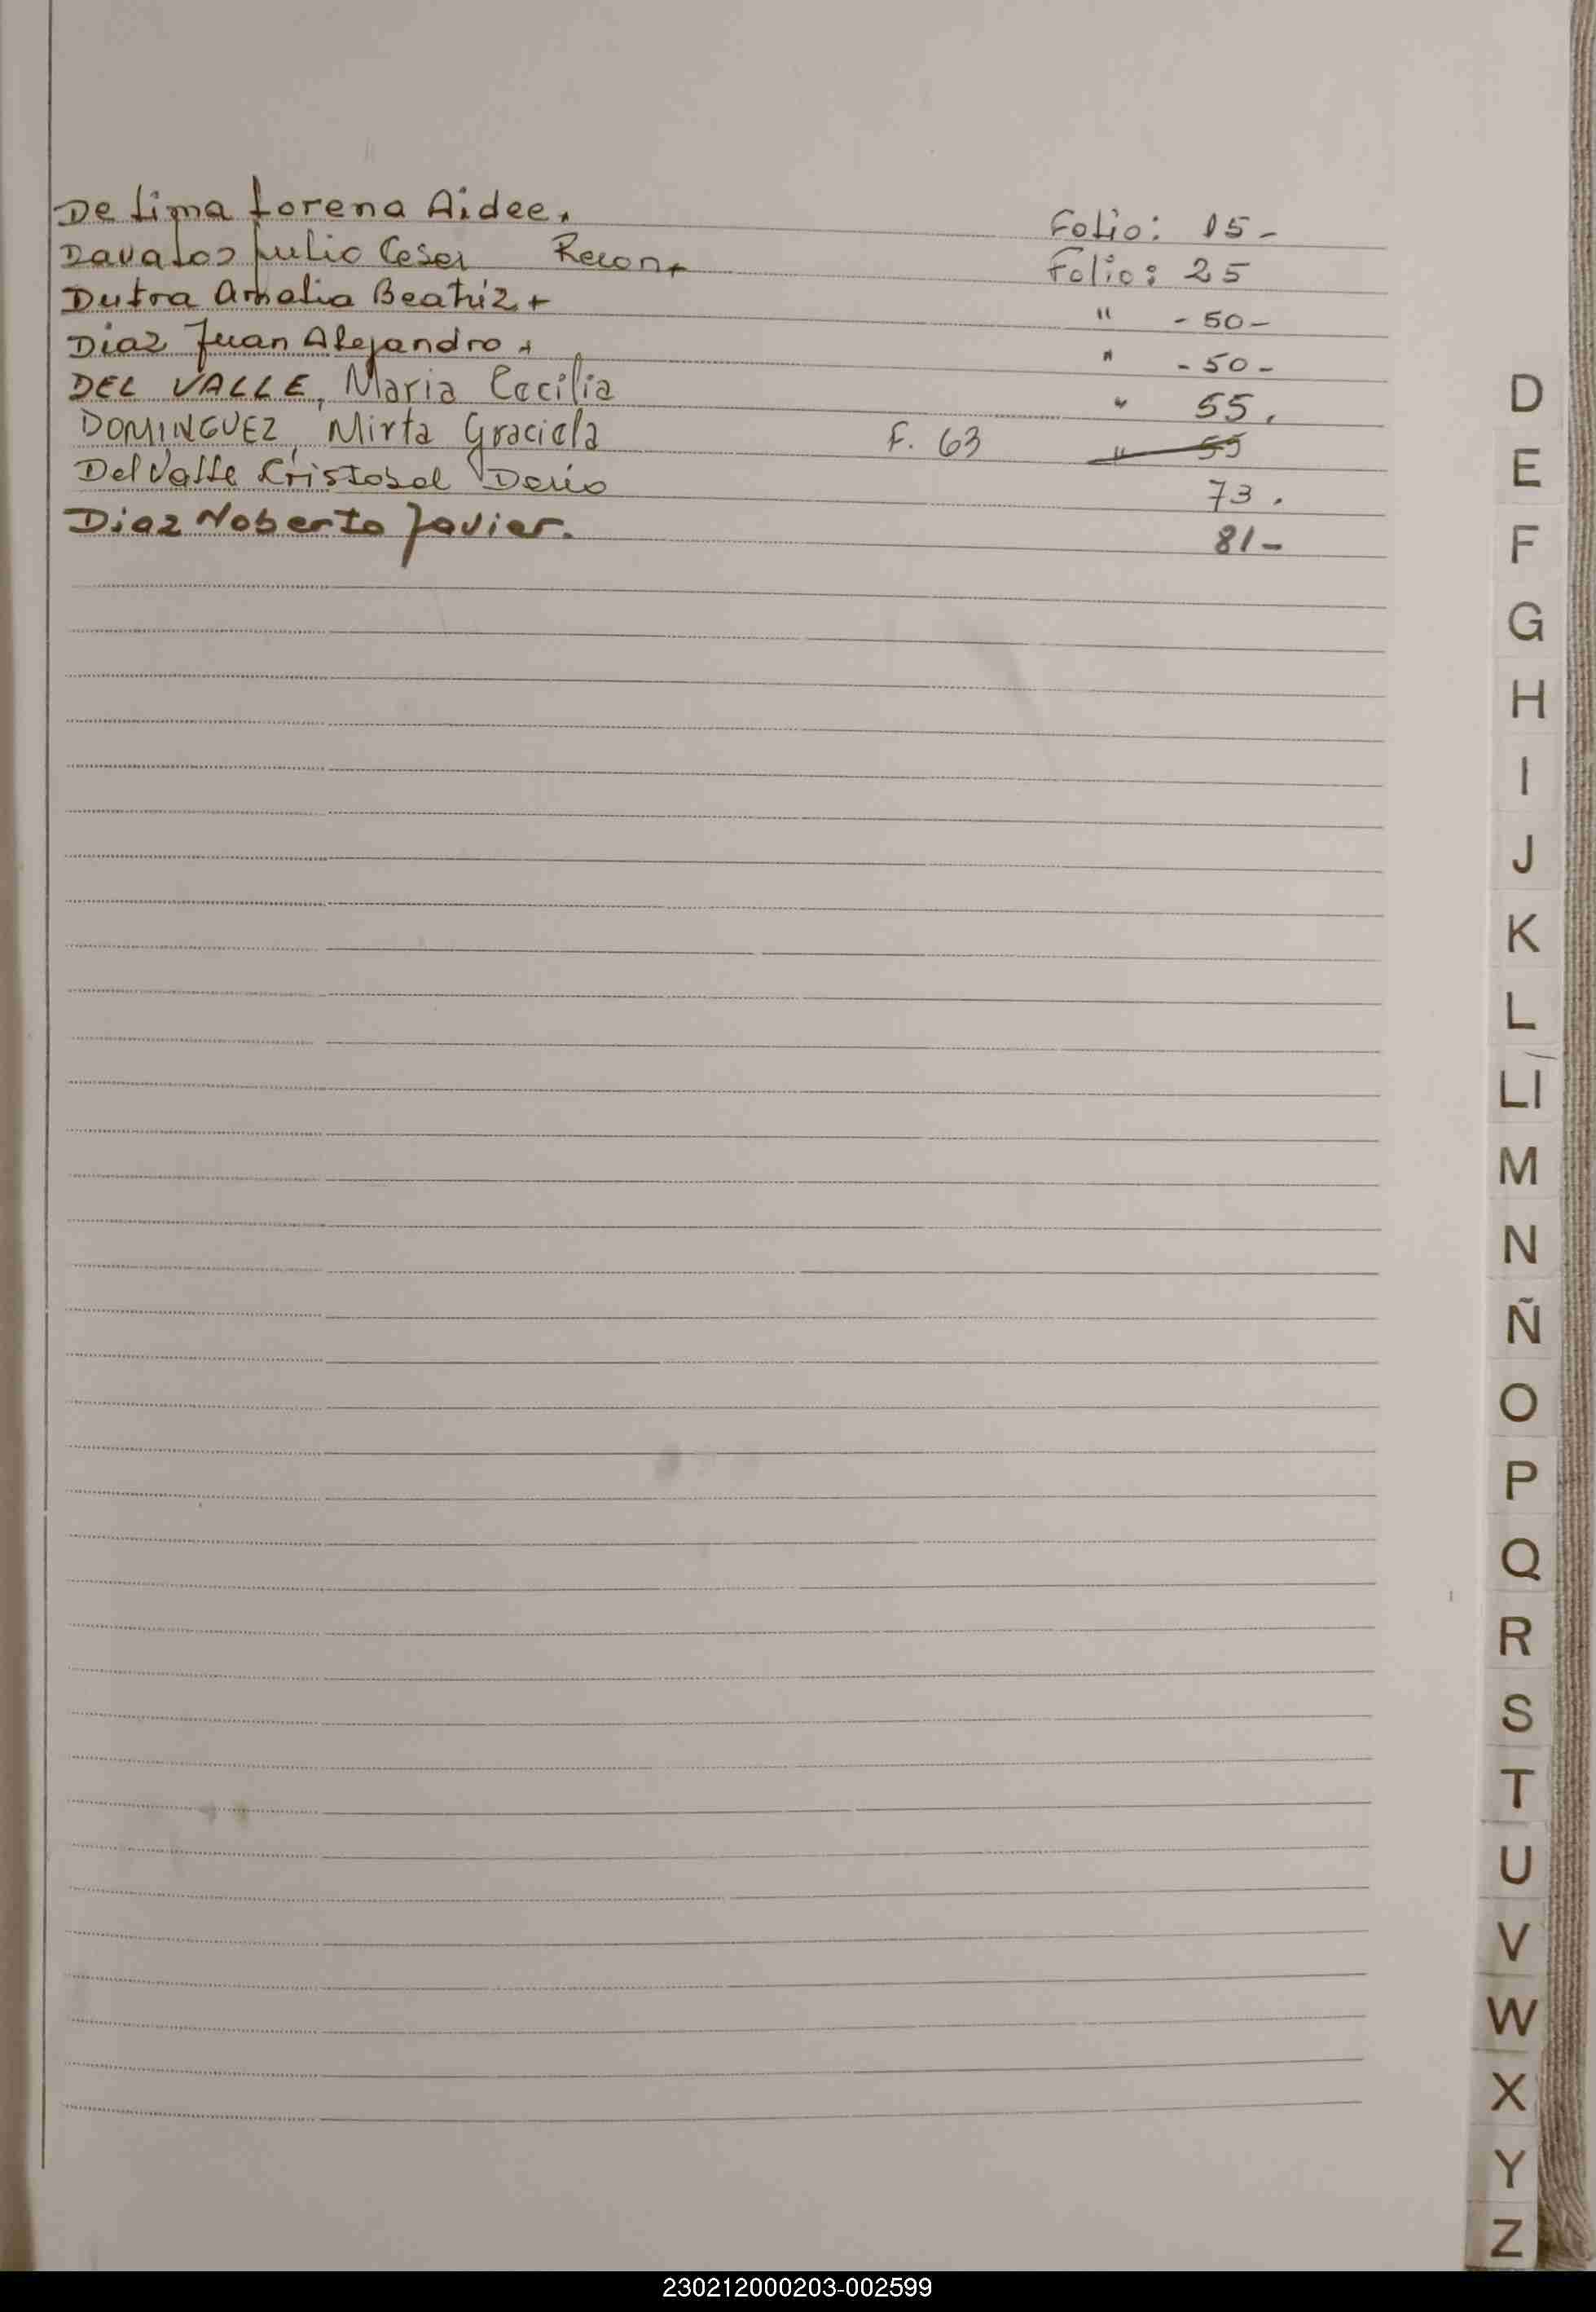 De Lima Lorena Aidee. Folio: 15-
Davalos Julio Cesar Recon+ Folio: 25
Dutra Amalia Beatriz+ " -50-
Diaz Juan Alejandro + " -50-
DEL VALLE, Maria Cecilia " 55.
DOMINGUEZ, Mirta Graciela F. 63 " 55
Del Valle Cristobal Dario 73.
Diaz Noberto Javier. 81-
D
E
F
G
H
I
J
K
L
Ll
M
N
Ñ
O
P
Q
R
S
T
U
V
W
X
Y
Z
230212000203-002599